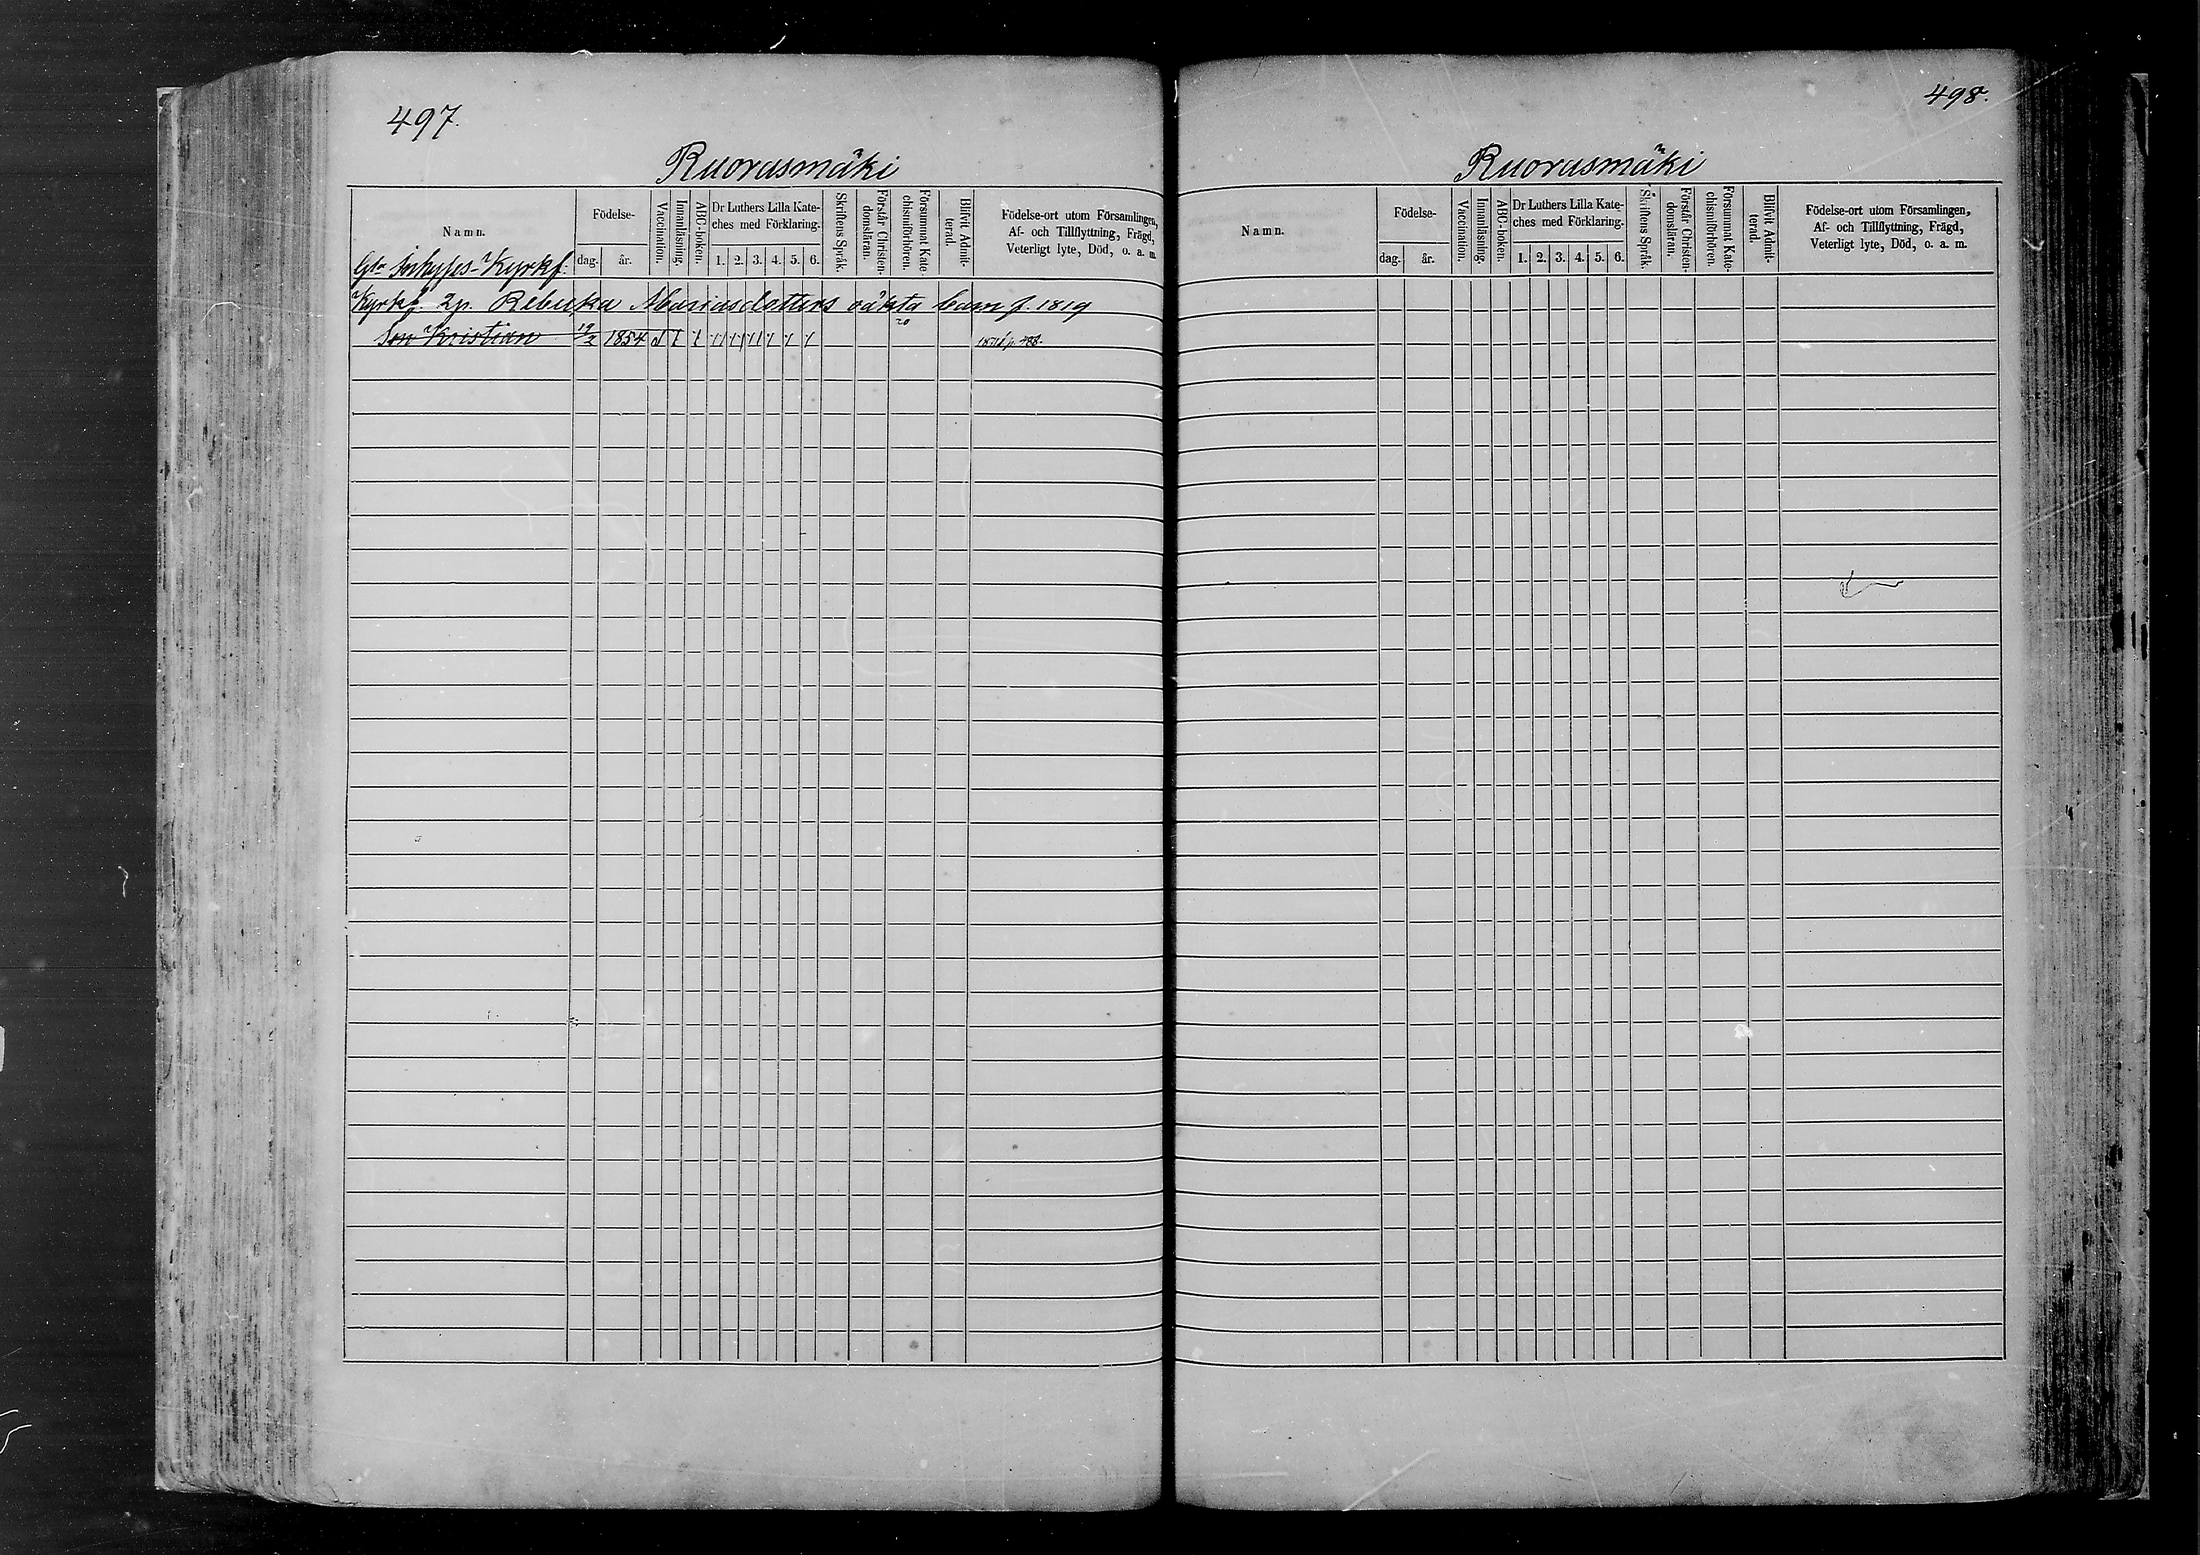 497.
Ruorasmäki
Namn.
Födelse-
dag.
år.
Vaccination.
Innanläsning.
ABC-boken.
Dr Luthers Lilla Kate-
ches med Förklaring.
1. 2. 3. 4. 5. 6.
Skriftens Språk.
Förstår Christen-
domsläran.
Försummat Kate-
chismiförhören.
Blifvit Admit-
terad.
Födelse-ort utom Församlingen,
Af- och Tillflyttning, Frägd,
Veterligt lyte, Död, o. a. m.
Kyrkf.
Kyrkf. 2p. Rebecka Mariasdotters oäkta barn f. 1819
20
Son Kristian 19/2 1854
498.
Ruorasmäki
Namn.
Födelse-
dag.
år.
Vaccination.
Innanläsning.
ABC-boken.
Dr Luthers Lilla Kate-
ches med Förklaring.
1. 2. 3. 4. 5. 6.
Skriftens Språk.
Förstår Christen-
domsläran.
Försummat Kate-
chismiförhören.
Blifvit Admit-
terad.
Födelse-ort utom Församlingen,
Af- och Tillflyttning, Frägd,
Veterligt lyte, Död, o. a. m.